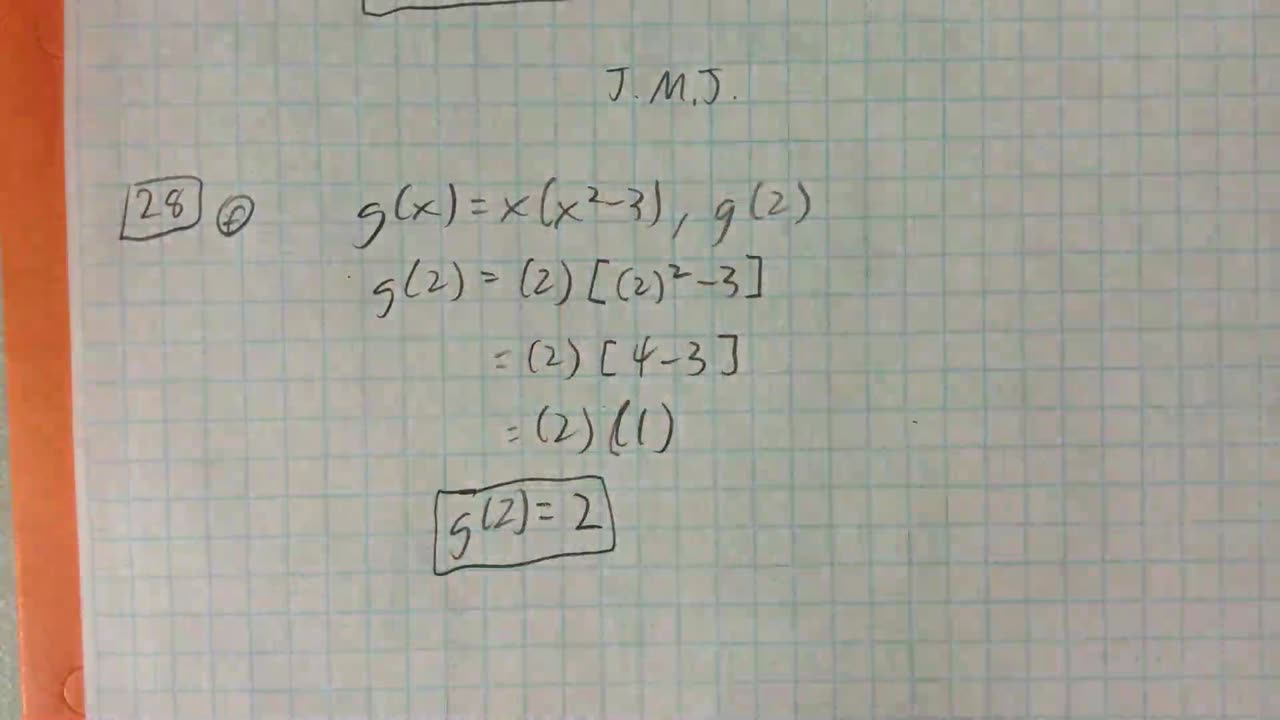 J.M.J.
28 f g(x) = x(x²-3), g(2)
g(2) = (2)[(2)²-3]
= (2)[4-3]
= (2)(1)
g(2) = 2